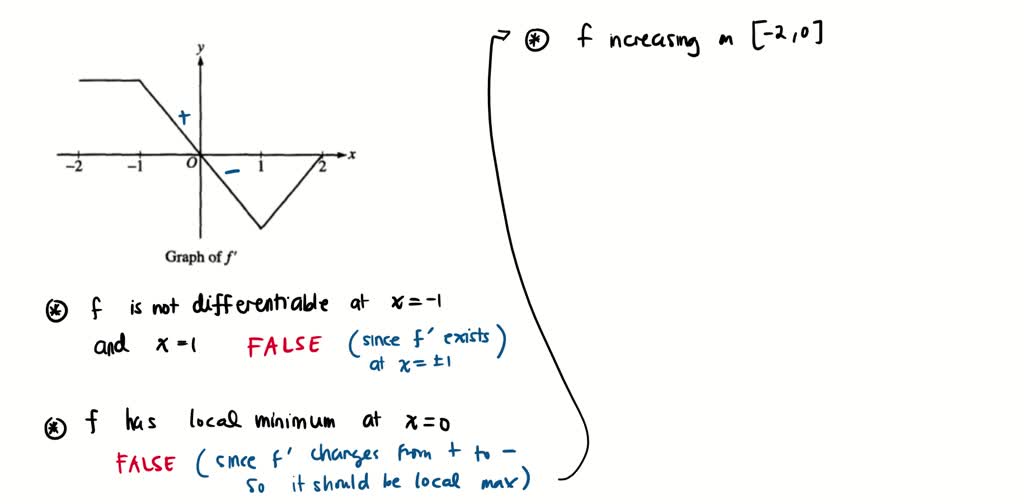 y
+
-2
-1
O
1
2
x
−
Graph of f'
⊛ f is not differentiable at x=-1
and x=1 FALSE (since f' exists
at x=±1)
⊛ f has local minimum at x=0
FALSE (since f' changes from + to -
so it should be local max)
⊛ f increasing on [-2,0]